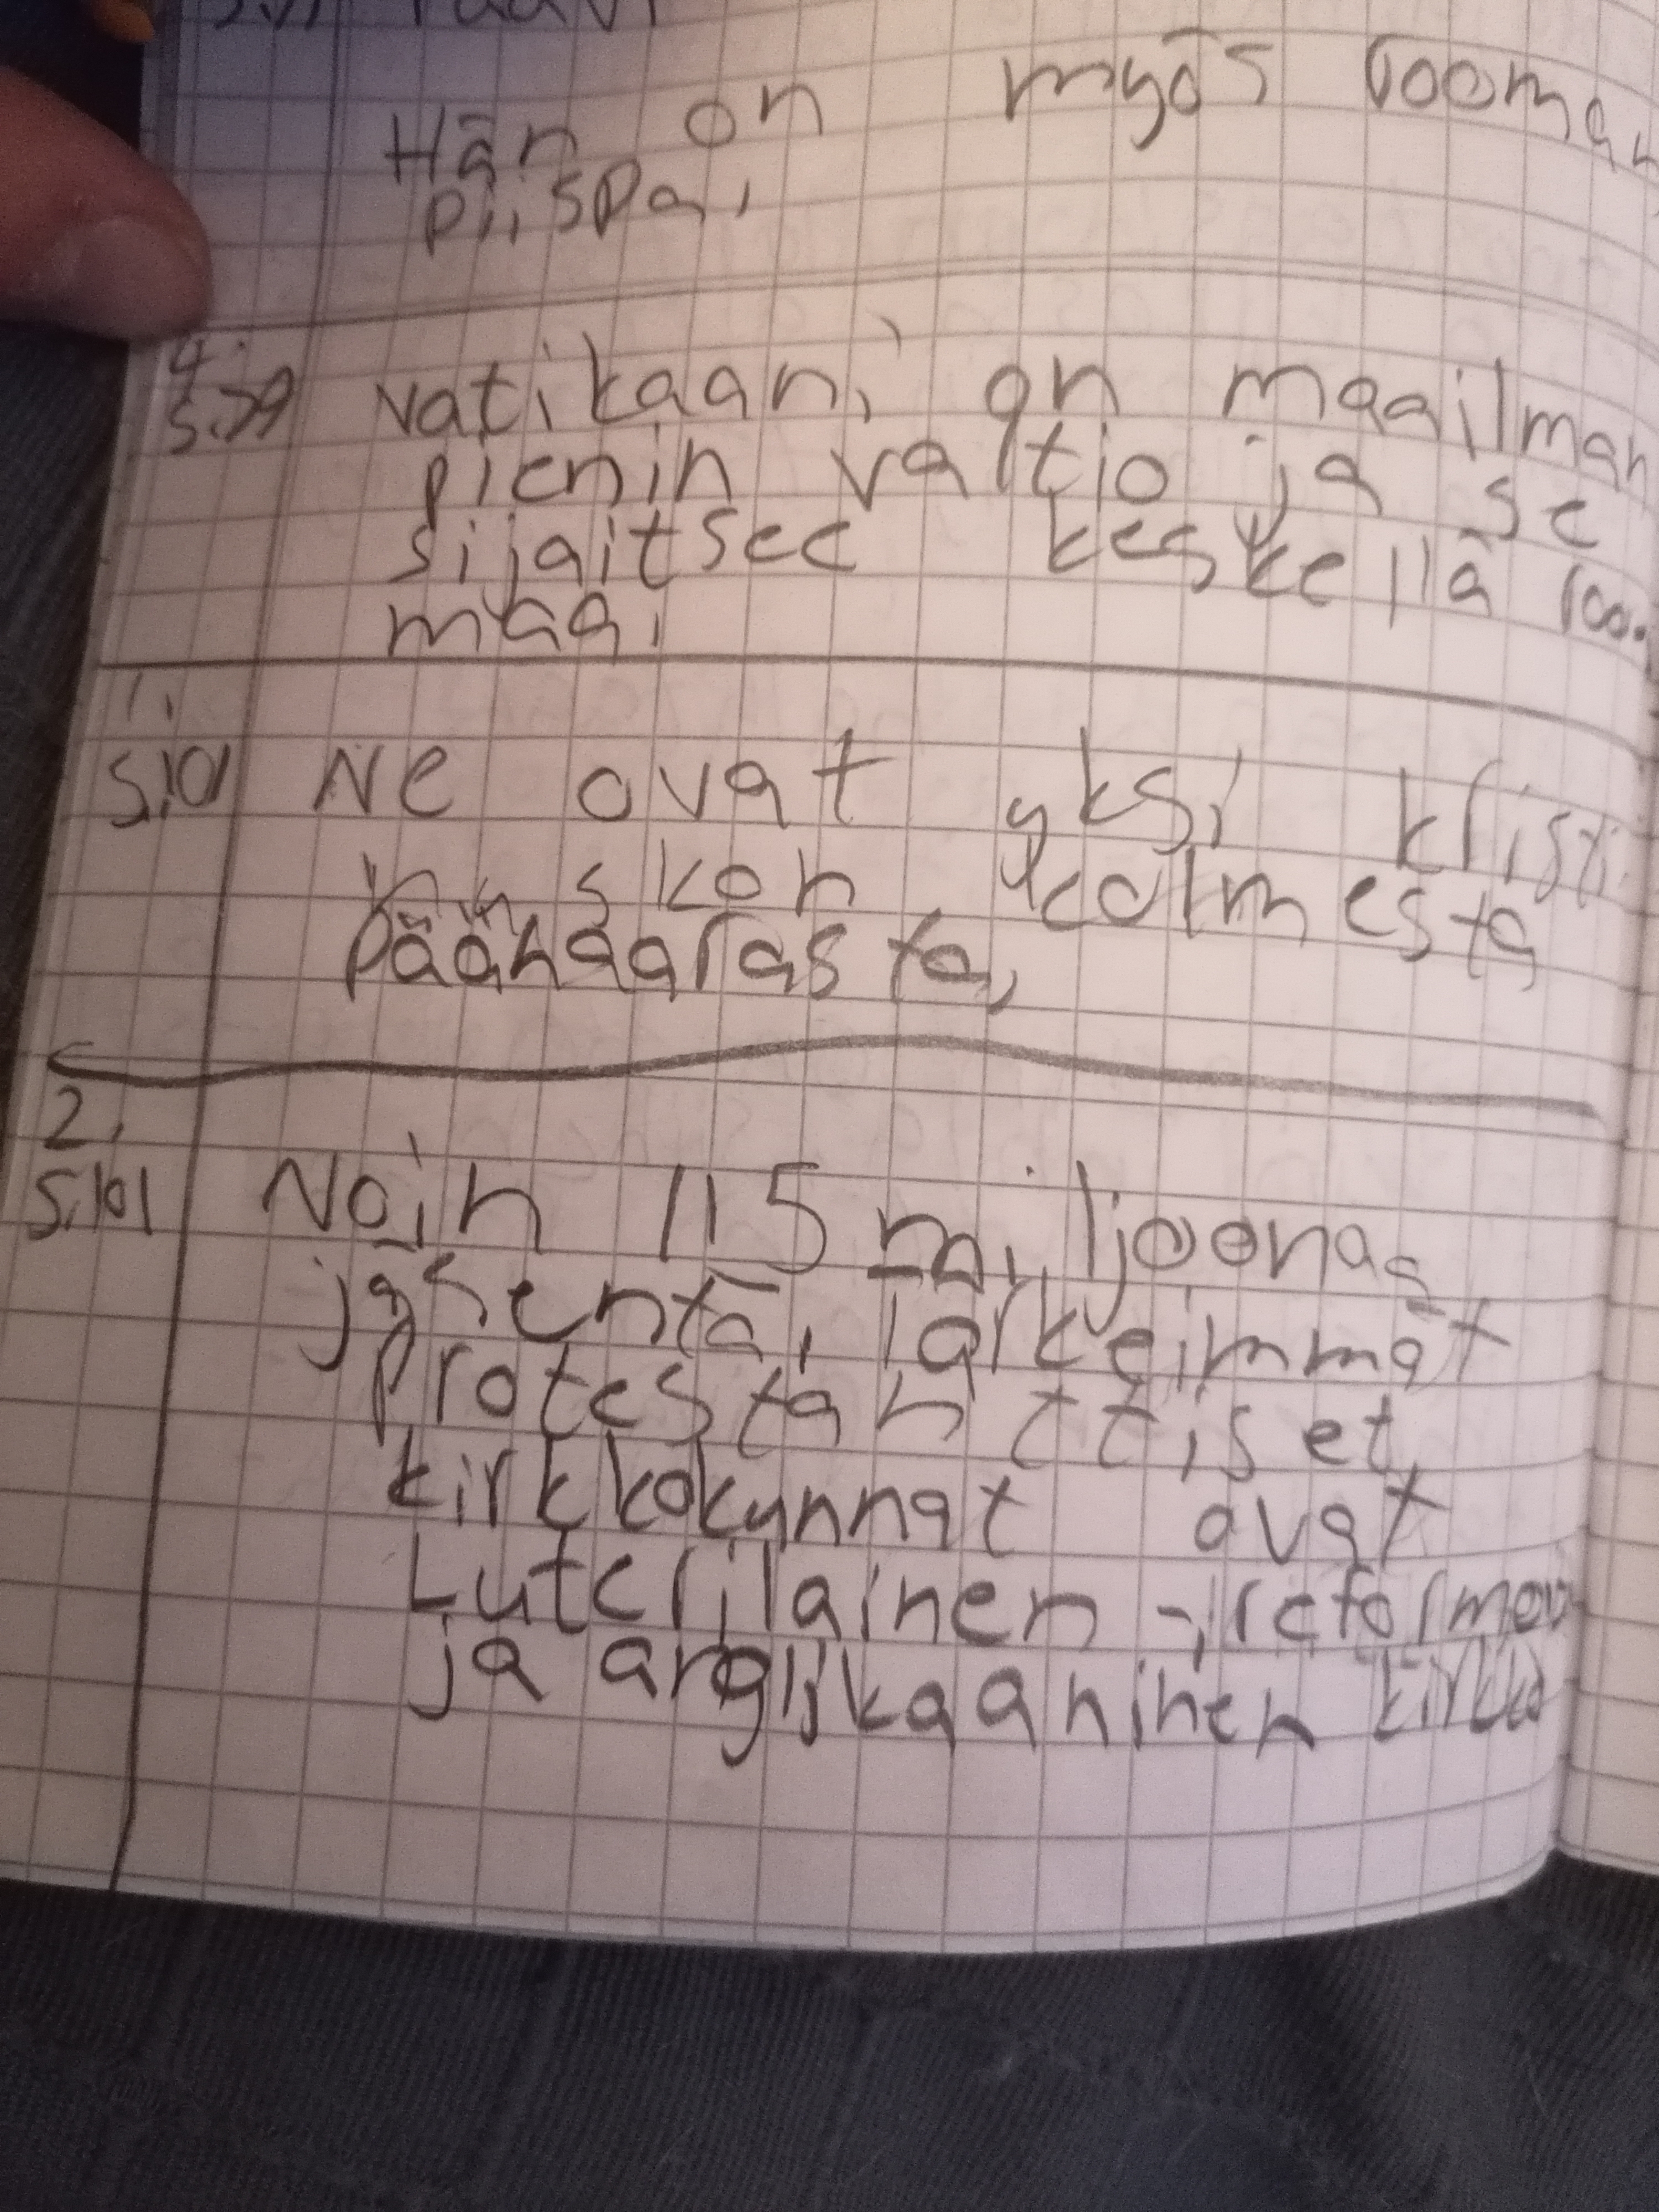 Hän on myös rooman
piispa.
4.
s.79 vatikaani on maailman
pienin valtio ja se
sijaitsee keskellä roo-
maa.
1.
s.101 Ne ovat yksi kristi
nuskon kolmesta
päähaarasta.
2.
s.101 Noin 115 miljoonaa
jäsentä. Tärkeimmät
protestanttiset
kirkkokunnat ovat
Luterilainen -,
ja anglikaaninen kirkko